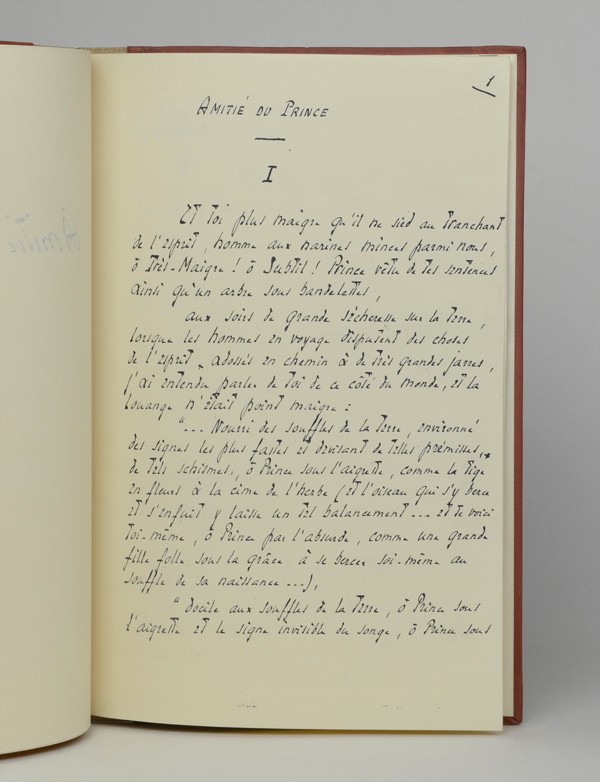 1
AMITIÉ DU PRINCE
I
Et toi plus maigre qu'il ne sied au tranchant
de l'esprit, homme aux narines minces parmi nous,
ô Très-Maigre! ô Subtil! Prince vêtu de tes sentences
ainsi qu'un arbre sous bandelettes,
aux soirs de grande sécheresse sur la terre,
lorsque les hommes en voyage disputent des choses
de l'esprit adossés en chemin à de très grandes jarres,
j'ai entendu parler de toi de ce côté du monde, et la
louange n'était point maigre :
"... Nourri des souffles de la terre, environné
des signes les plus fastes et devisant de telles prémisses,
de tels schismes, ô Prince sous l'aigrette, comme la tige
en fleurs à la cime de l'herbe (et l'oiseau qui s'y berce
et s'enfuit y laisse un tel balancement ... et te voici
toi-même, ô Prince par l'absurde, comme une grande
fille folle sous la grâce à se bercer soi-même au
souffle de sa naissance...),
"docile aux souffles de la terre, ô Prince sous
l'aigrette et le signe invisible du songe, ô Prince sous
Amitié